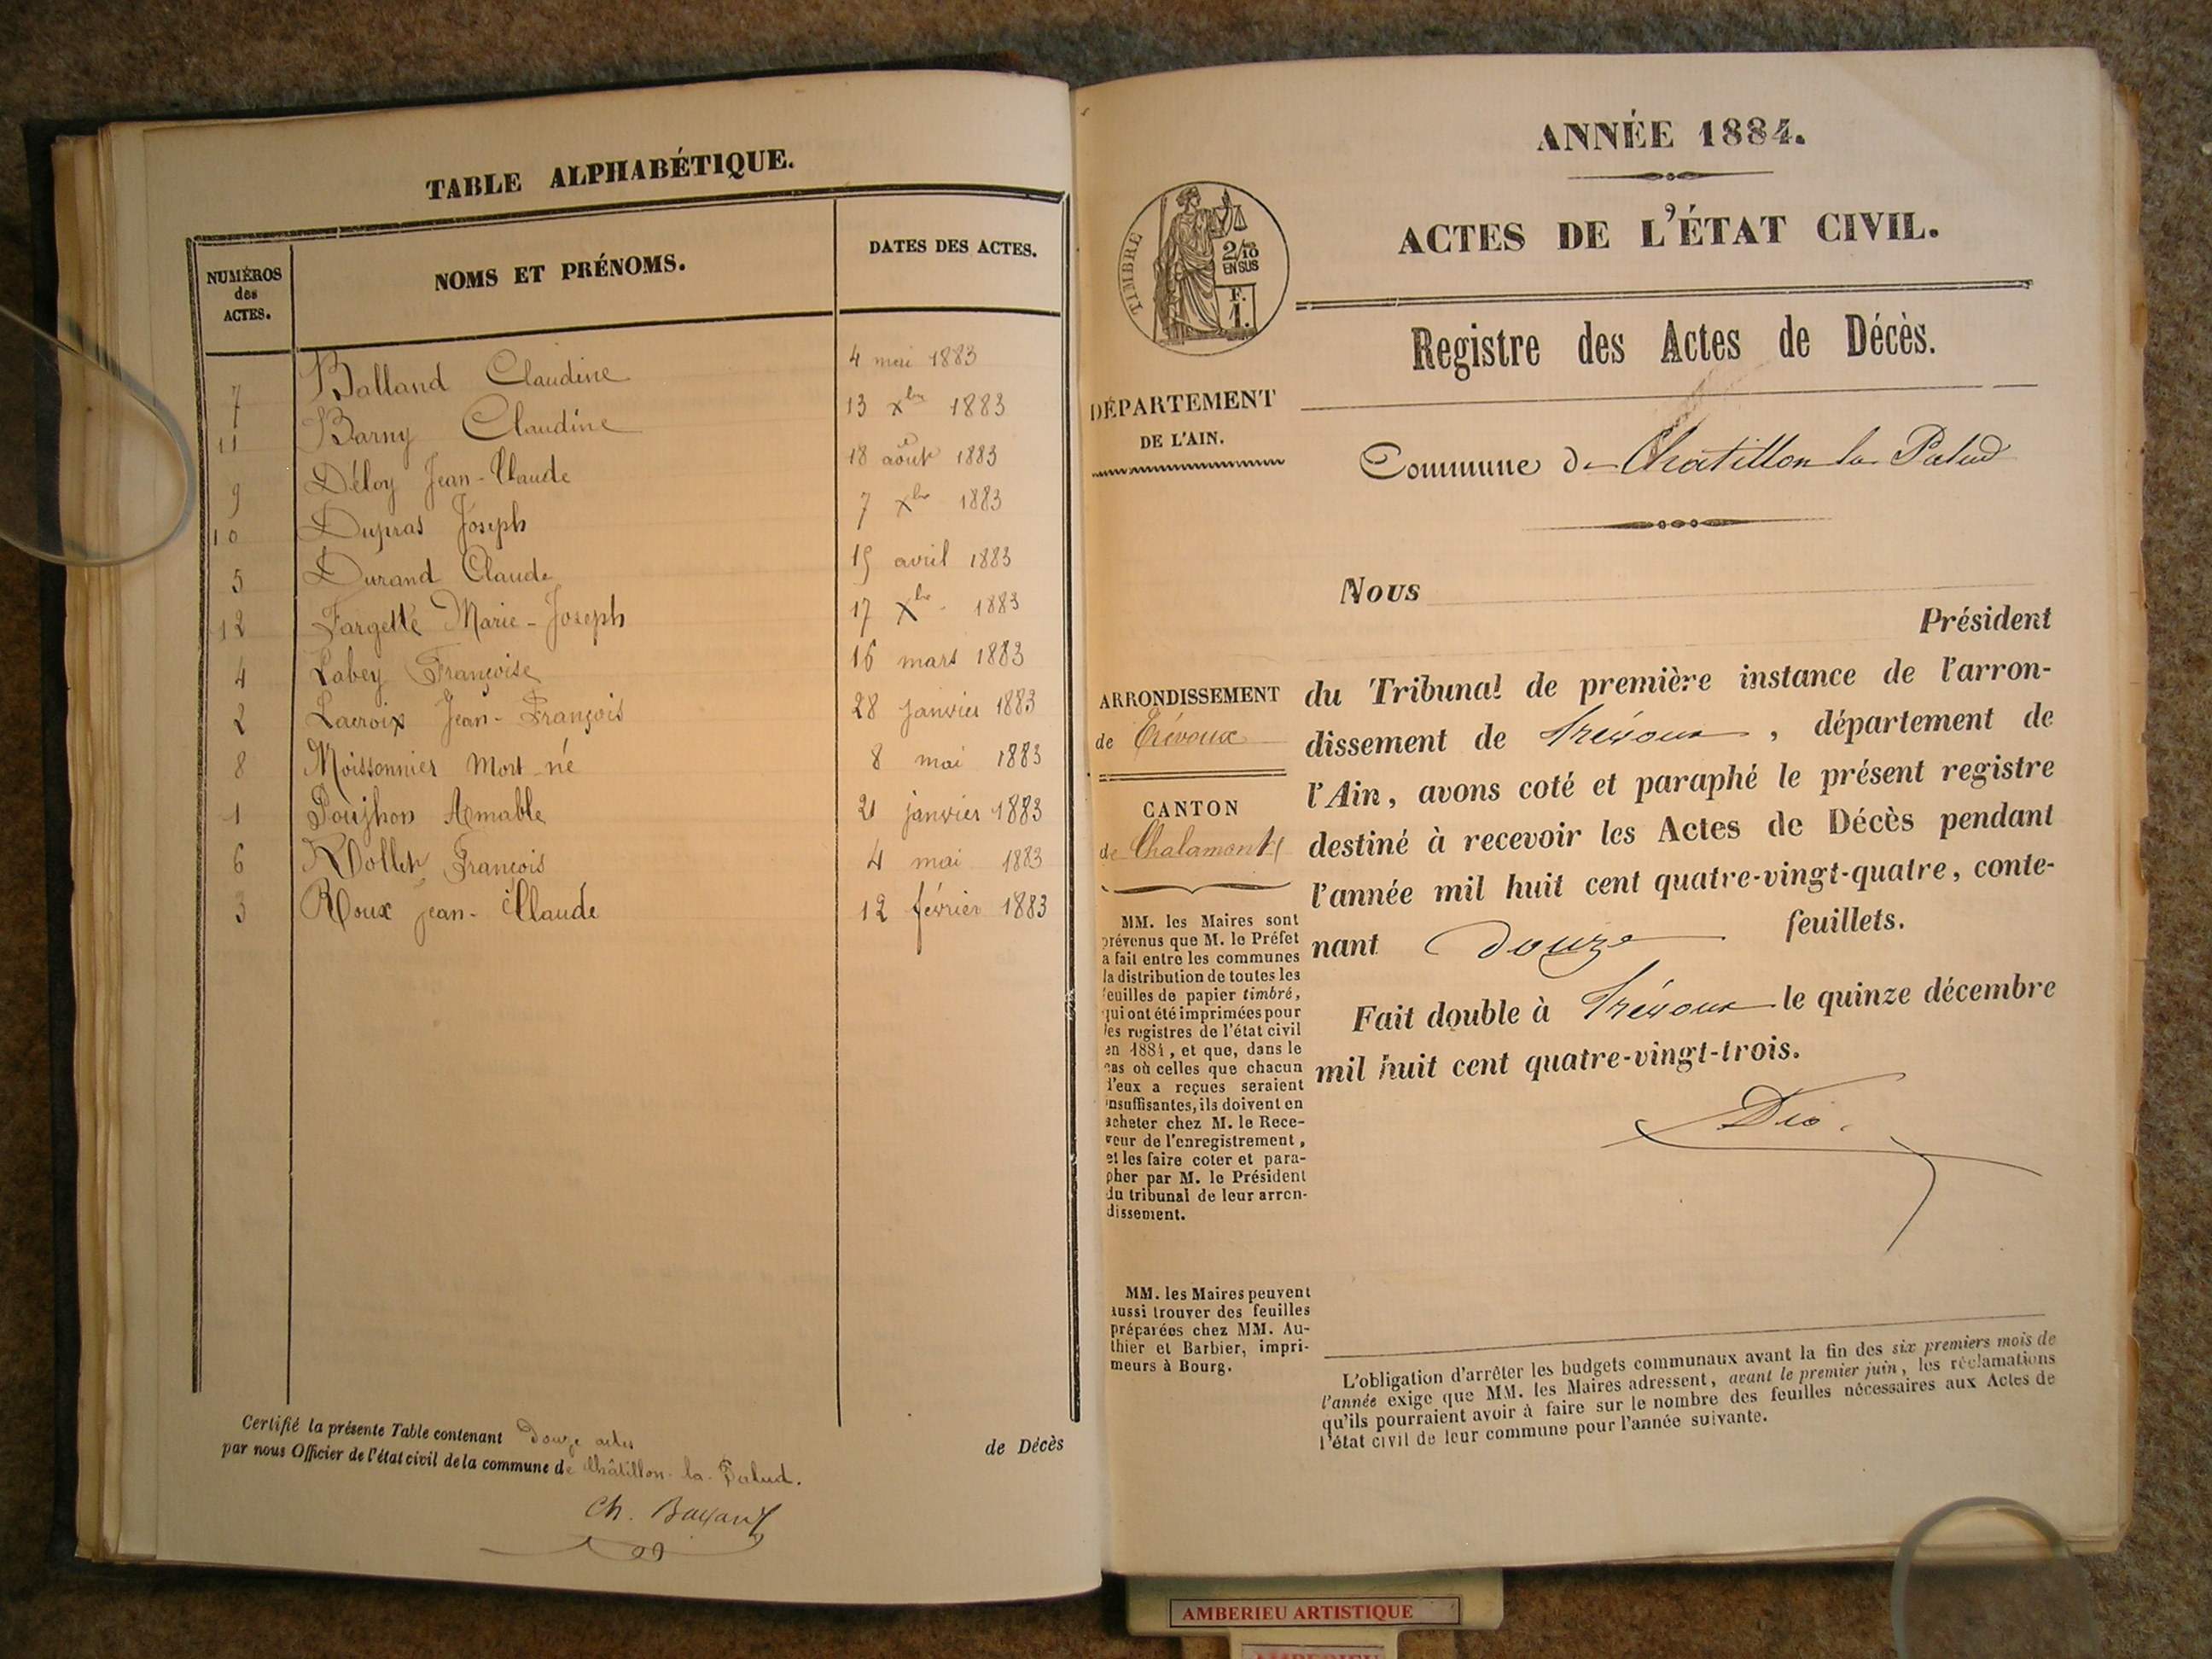 TABLE ALPHABÉTIQUE.
NUMÉROS
des
ACTES.
NOMS ET PRÉNOMS.
DATES DES ACTES.
7 Balland Claudine 4 mai 1883
11 Barny Claudine 13 xbre 1883
9 Déloy Jean-Claude 18 août 1883
10 Dupras Joseph 7 xbre 1883
5 Durand Claude 15 avril 1883
12 Fargette Marie-Joseph 17 Xbre 1883
4 Labey Françoise 16 mars 1883
2 Lacroix Jean-François 28 janvier 1883
8 Moissonnier Mort-né 8 mai 1883
1 Poujhon Amable 21 janvier 1883
6 Rollet François 4 mai 1883
3 Roux Jean-Claude 12 février 1883
Certifié la présente Table contenant Douze actes de Décès
par nous Officier de l'état civil de la commune de Châtillon-la-Palud.
Ch.
ANNÉE 1884.
ACTES DE L'ÉTAT CIVIL.
TIMBRE
2/10
EN SUS
F.
1.
Registre des Actes de Décès.
DÉPARTEMENT
DE L'AIN.
Commune de Chatillon la Palud
Nous
Président
ARRONDISSEMENT
de Trévoux
CANTON
de Chalamont
du Tribunal de première instance de l'arron-
dissement de Trévoux, département de
l'Ain, avons coté et paraphé le présent registre
destiné à recevoir les Actes de Décès pendant
l'année mil huit cent quatre-vingt-quatre, conte-
nant Douze feuillets.
Fait double à Trévoux le quinze décembre
mil huit cent quatre-vingt-trois.
MM. les Maires sont
prévenus que M. le Préfet
a fait entre les communes
la distribution de toutes les
feuilles de papier timbré,
qui ont été imprimées pour
les registres de l'état civil
en 1884, et que, dans le
cas où celles que chacun
d'eux a reçues seraient
insuffisantes, ils doivent en
acheter chez M. le Rece-
veur de l'enregistrement,
et les faire coter et para-
pher par M. le Président
du tribunal de leur arron-
dissement.
MM. les Maires peuvent
aussi trouver des feuilles
préparées chez MM. Au-
thier et Barbier, impri-
meurs à Bourg.
L'obligation d'arrêter les budgets communaux avant la fin des six premiers mois de
l'année exige que MM. les Maires adressent, avant le premier juin, les réclamations
qu'ils pourraient avoir à faire sur le nombre des feuilles nécessaires aux Actes de
l'état civil de leur commune pour l'année suivante.
AMBERIEU ARTISTIQUE
AMBERIEU